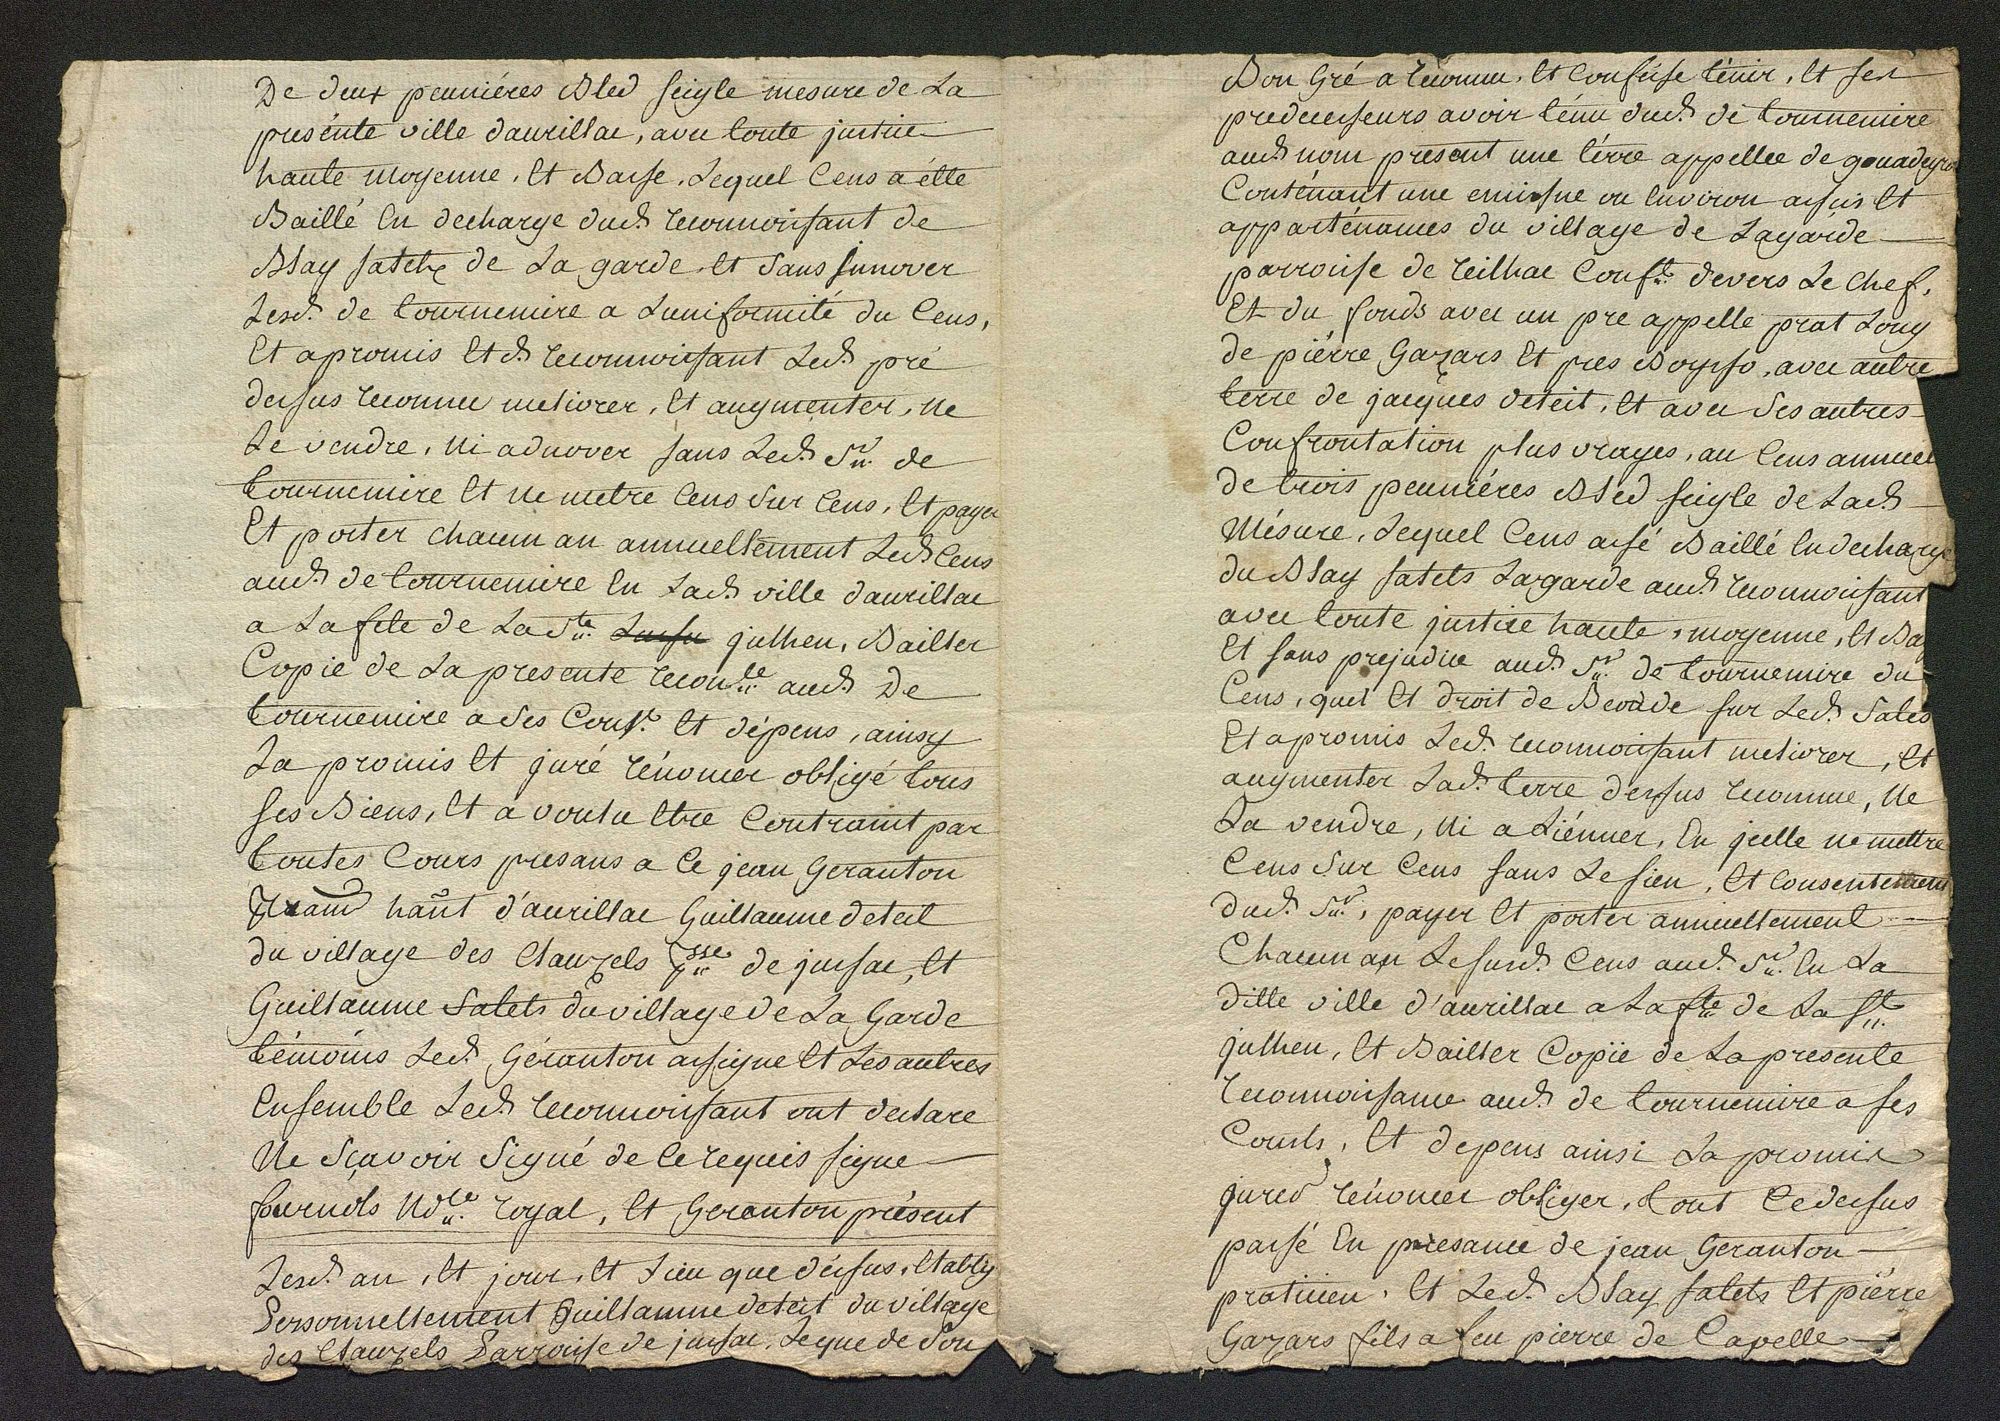 De deux pennières Bled seigle mesure de La
présénte ville daurillac, avec toute justice
haute moyenne, Et Basse, Lequel Cens a été
Baillé En decharge dud. reconnoissant de
Blay salets de La garde, et sans Innover
Lesd. de tournemire a Luniformité du Cens,
Et a promis Etd. reconnoissant Led. pré
dessus reconnu meliorer, Et augmenter, Ne
Le vendre, Ni adnover sans Led. Sr. de
tournemire Et ne metre Cens sur Cens, Et payer
Et porter chacun an annuellement Led. Cens
aud. de tournemire En Lad. ville daurillac
a La fete de La Ste. julhen, Bailler
Copie de La presente recon.ce aud. De
tournemire a ses Cou.ts Et dépens, ainsy
La promis Et juré rénoncer obligé tous
ses Biens, Et a voulu Etre Contraint par
toutes Cours presans a Ce jean Geranton
haut d'aurillac Guillaume deteil
du village des Clauzels p.sse de jussac, Et
Guillaume Salets du village de La Garde
témoins Led. Géranton a signe Et Les autres
Ensemble Led. reconnoissant ont declare
Ne Sçavoir Signé de Ce requis signe
fournols No.re royal, Et Geranton présent
Lesd. an, Et jour, Et Lieu que déssus, Etably
Personnellement Guillaume deteil du village
des Clauzels Parroisse de jussac, Leque de son
Bon Gré a reconnu, Et Confessé ténir, Et ses
predecesseurs avoir ténu dud. de tournemire
aud. nom présent une térre appellée de gouadeyro
Conténant une eminne ou Environ assis Et
apparténances du village de Lagarde
parroisse de reilhac Conf.t devers Le Chef,
Et du fonds avec un pre appelle prat Long
de piérre Gazars Et pres Boysso, avec autre
terre de jacques deteil, Et avec ses autres
Confrontation plus vrayes, au Cens annuel
de trois pennières Bled seigle de Lad.
Mésure, Lequel Cens a esé Baillé En decharge
du Blay salets Lagarde aud. reconnoissant
avec toute justice haute, moyenne, Et Ba
Et sans prejudice aud. Sr. de tournemire du
Cens, quel Et droit de Beoude sur Led. Salets
Et a promis Led. reconnoissant meliorer, Et
augmenter Lad. terre dessus reconnue, Ne
La vendre, Ni a Liénner, En jcelle ne mettre
Cens Sur Cens sans Le sien, Et Consentement
dud. Sr., payer Et porter annuellement
Chacun an Le susd. Cens aud. Sr. En La
ditte ville d'aurillac a La f.te de La St.
julhen, Et Bailler Copïe de La presente
reconnoissance aud. de tournemire a ses
Cousts, Et depens ainsi La promis
jured rénoncer obliger, tout Ce dessus
passé En presance de jean Geranton
praticien, Et Led. Blay salets Et piérre
Gazars fils a feu pierre de Capelle